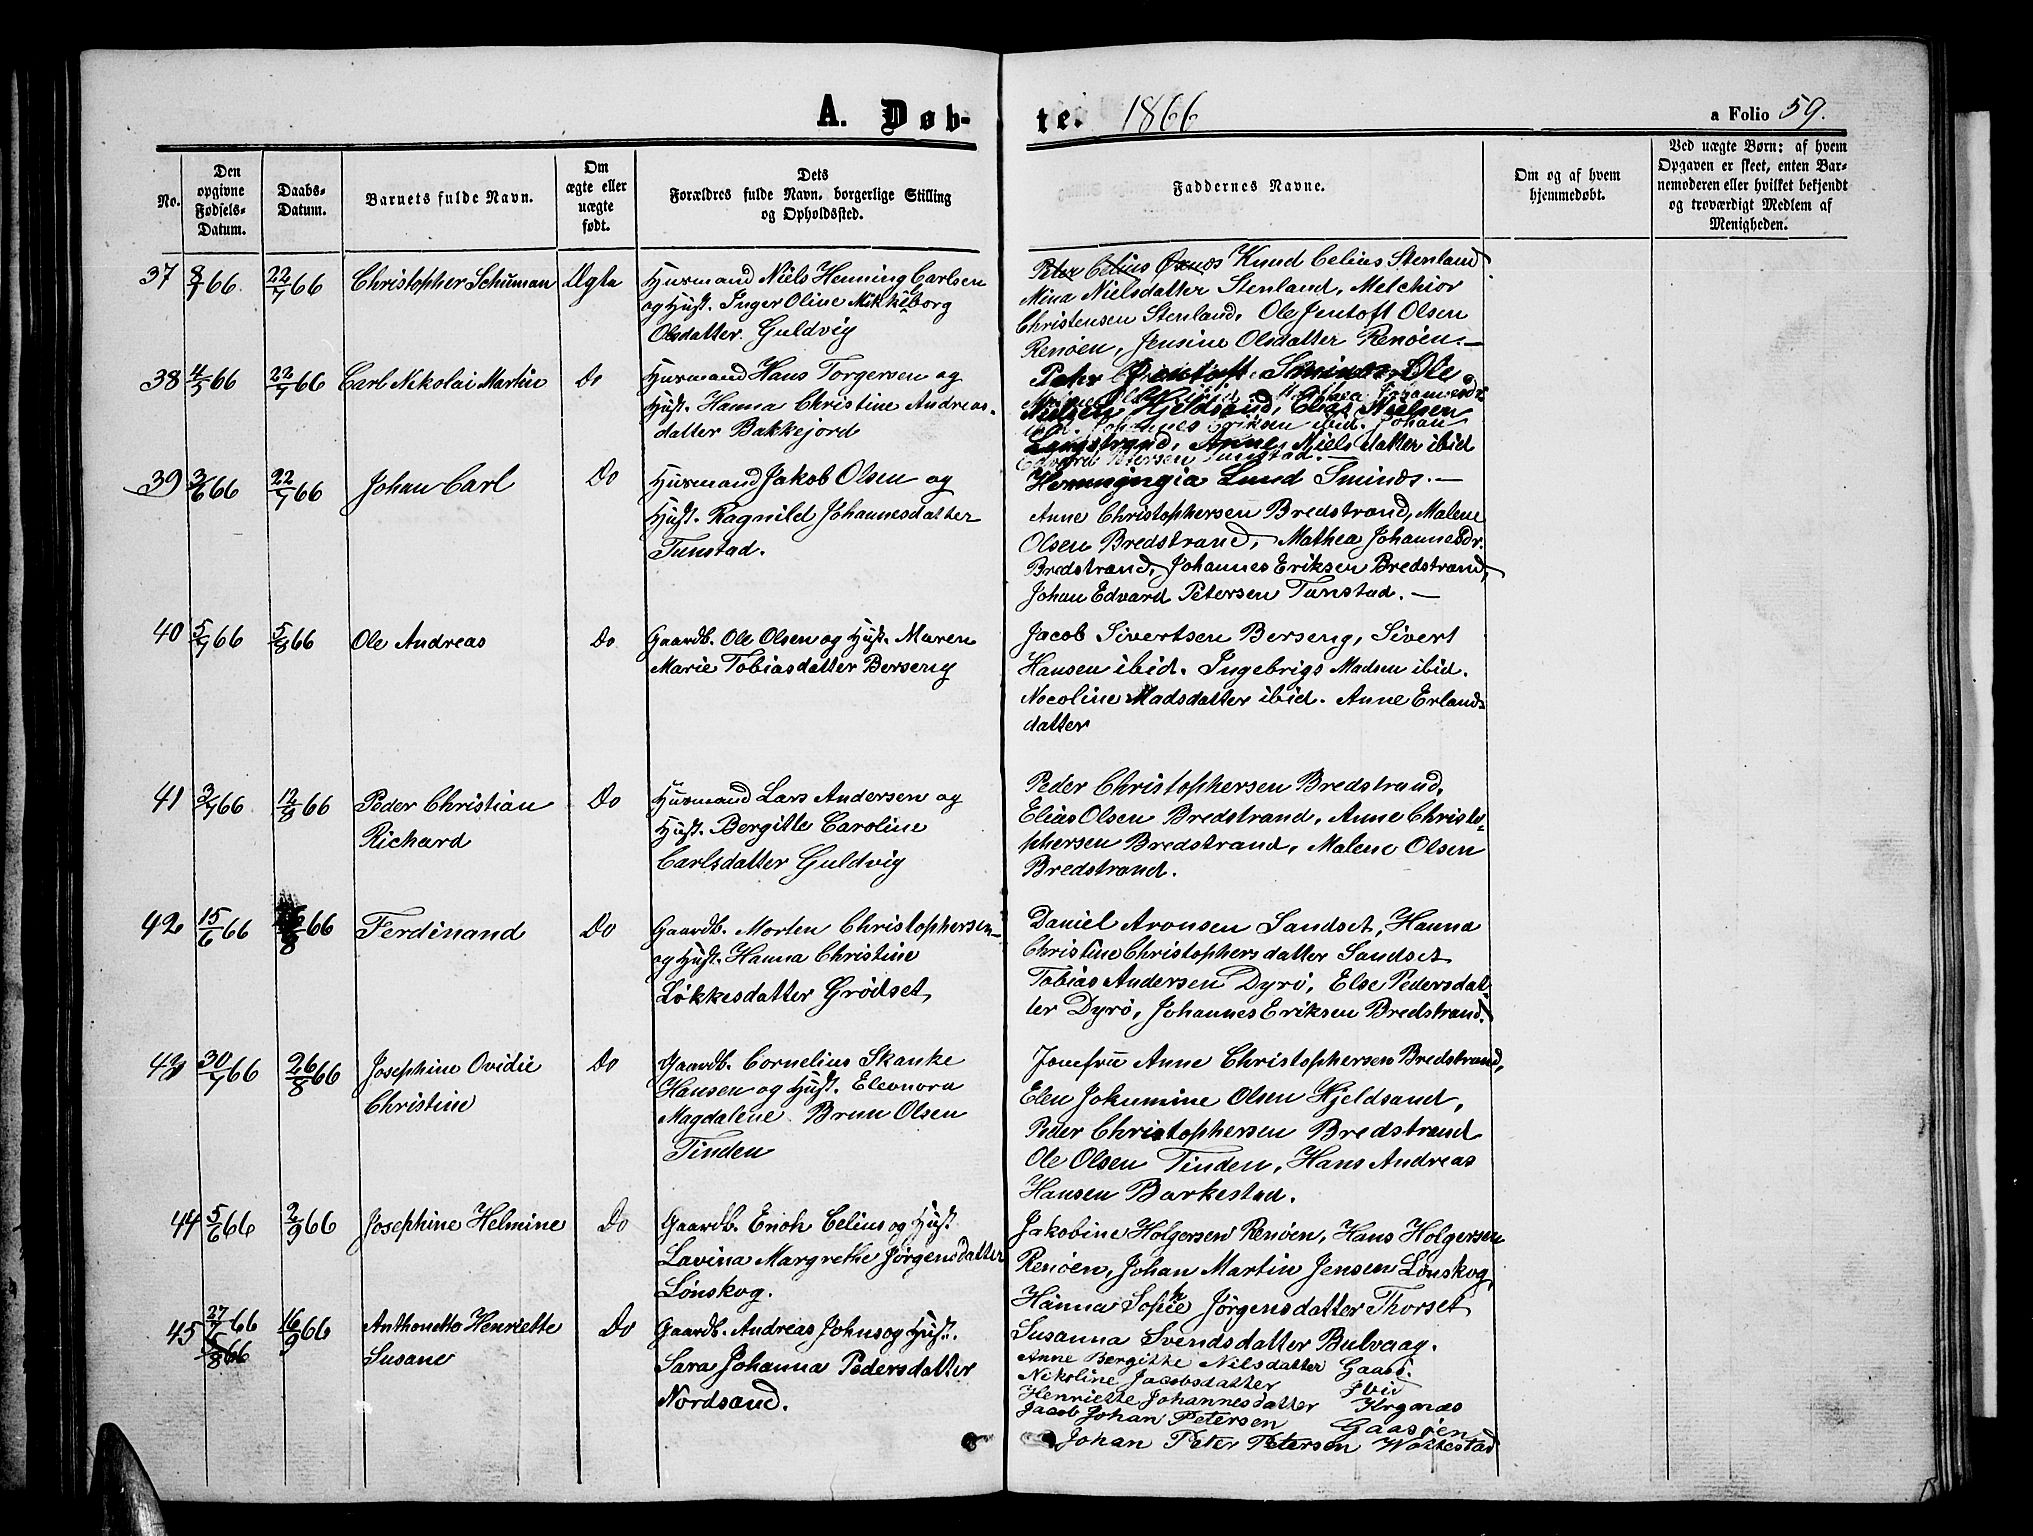 A. Døb-
te. 1866
a Folio 59.
No.
Den opgivne Fødsels-Datum.
Daabs-Datum.
Barnets fulde Navn.
Om ægte eller uægte født.
Dets Forældres fulde Navn, borgerlige Stilling og Opholdssted.
Faddernes Navne.
Om og af hvem hjemmedøbt.
Ved uægte Børn: af hvem Opgaven er skeet, enten Barnemoderen eller hvilket bekjendt og troværdigt Medlem af Menigheden.
37 8/7 66. 22/7 66 Christopher Schuman Ægte
Huusmand Niels Henning Carlsen
og Hust. Inger Oline Mikkelborg
Olsdatter. Guldvig
Peter Celius Knud Celius Stenland
Mina Nielsdatter Stenland, Melchior
Christensen Stenland, Ole Jentoft Olsen
Renöen, Jensine Olsdatter Renöen.—
38 4/5 66 22/7 66 Carl Nikolai Martin Do
Huusmand Hans Torgersen og
Hust. Hanna Christine Andreas-
datter Bakkejord
Jentoft Ole
Nielsen Kjeldsand, Elias Nielsen
Langstrand, Anne Nielsdatter ibid
Edvard Petersen Tunstad.
Henningia Lund Sminæs.—
39 3/6 66 22/7 66 Johan Carl Do
Huusmand Jakob Olsen og
Hust. Ragnild Johannesdatter
Tunstad.
Anne Christophersen Bredstrand, Malene
Olsen Bredstrand, Mathea Johannesdr.
Bredstrand, Johannes Eriksen Bredstrand,
Johan Edvard Petersen Tunstad.—
40 5/7 66 5/8 66 Ole Andreas Do
Gaardb. Ole Olsen og Hust. Maren
Marie Tobiasdatter Berseng
Jacob Sivertsen Berseng, Sivert
Hansen ibid. Ingebrigs Madsen ibid.
Nicoline Madsdatter ibid. Anne Erlands-
datter
41 3/7 66 12/8 66 Peder Christian Do
Richard
Huusmand Lars Andersen og
Hust. Bergitte Caroline
Carlsdatter Guldvig
Peder Christophersen Bredstrand,
Elias Olsen Bredstrand, Anne Christo-
phersen Bredstrand, Malene Olsen
Bredstrand.
42 15/6 66 /8 66 Ferdinand Do
Gaardb. Morten Christophersen
og Hust. Hanna Christine
Løkkesdatter Grödset
Daniel Aronsen Sandset, Hanna
Christine Christophersdatter Sandset
Tobias Andersen Dyrö, Else Pedersdat-
ter Dyrö, Johannes Eriksen Bredstrand.
43 30/7 66 26/8 66 Josephine Ovidie Do
Christine
Gaardb. Cornelius Skanke
Hansen og Hust. Eleonora
Magdalene Brun Olsen
Tinden
Jomfru Anne Christophersen Bredstrand,
Elen Jokumine Olsen Kjeldsand,
Peder Christophersen Bredstrand
Ole Olsen Tinden, Hans Andreas
Hansen Barkestad.
44 5/6 66 2/9 66 Josephine Helmine Do
Gaardb. Enok Celius og Hust.
Lavina Margrethe Jørgensdatter
Lønskog.
Jakobine Holgersen Renöen, Hans Holgersen
Renöen, Johan Martin Jensen Lönskog,
Hanna Sophie Jörgensdatter Thorset
Susanna Svendsdatter Bulvaag.
45 27/7 66 16/9 66 Anthonette Henriette Do
6/8 66 Susane
Gaardb. Andreas Johns og Hust.
Sara Johanna Pedersdatter
Nordsand.
Anne Bergitte Nilsdatter Gaasö.
Nikoline Jacobsdatter Ibid
Henriette Johannesdatter
Jacob Johan Petersen Gaasöen
Johan Peter Petersen